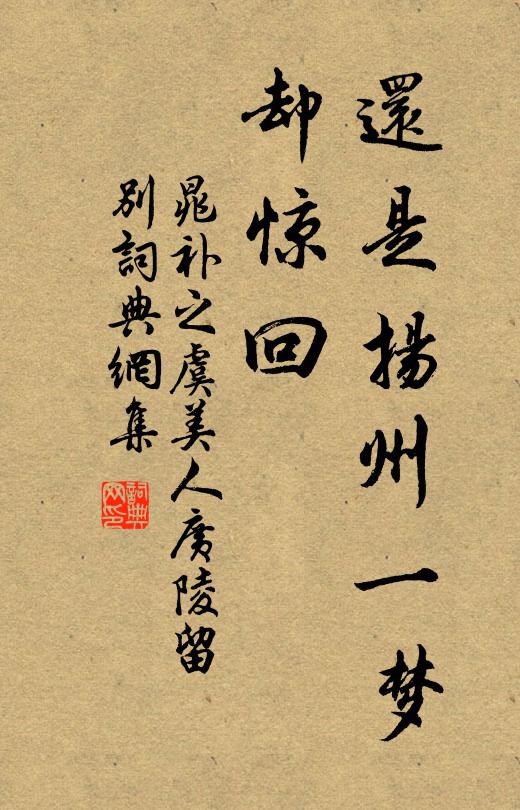 還是揚州一梦
却惊回
晁补之虞美人廣陵留
別詞典網集
詞典
网印